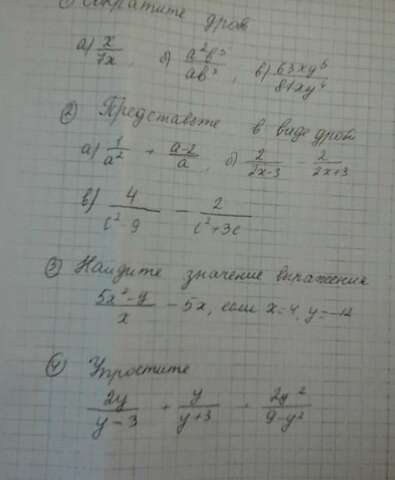 ① Сократите дроб
а) x/7x, б) a²b³/ab², в) 63xy⁵/81xy⁴
② Представьте в виде дроб
а) 1/a² + a-2/a, б) 2/2x-3 - 2/2x+3
в) 4/c²-9 - 2/c²+3c
③ Найдите значение выражения
5x²-y/x - 5x, если x=4, y=-12
④ Упростите
2y/y-3 + y/y+3 + 2y²/9-y²